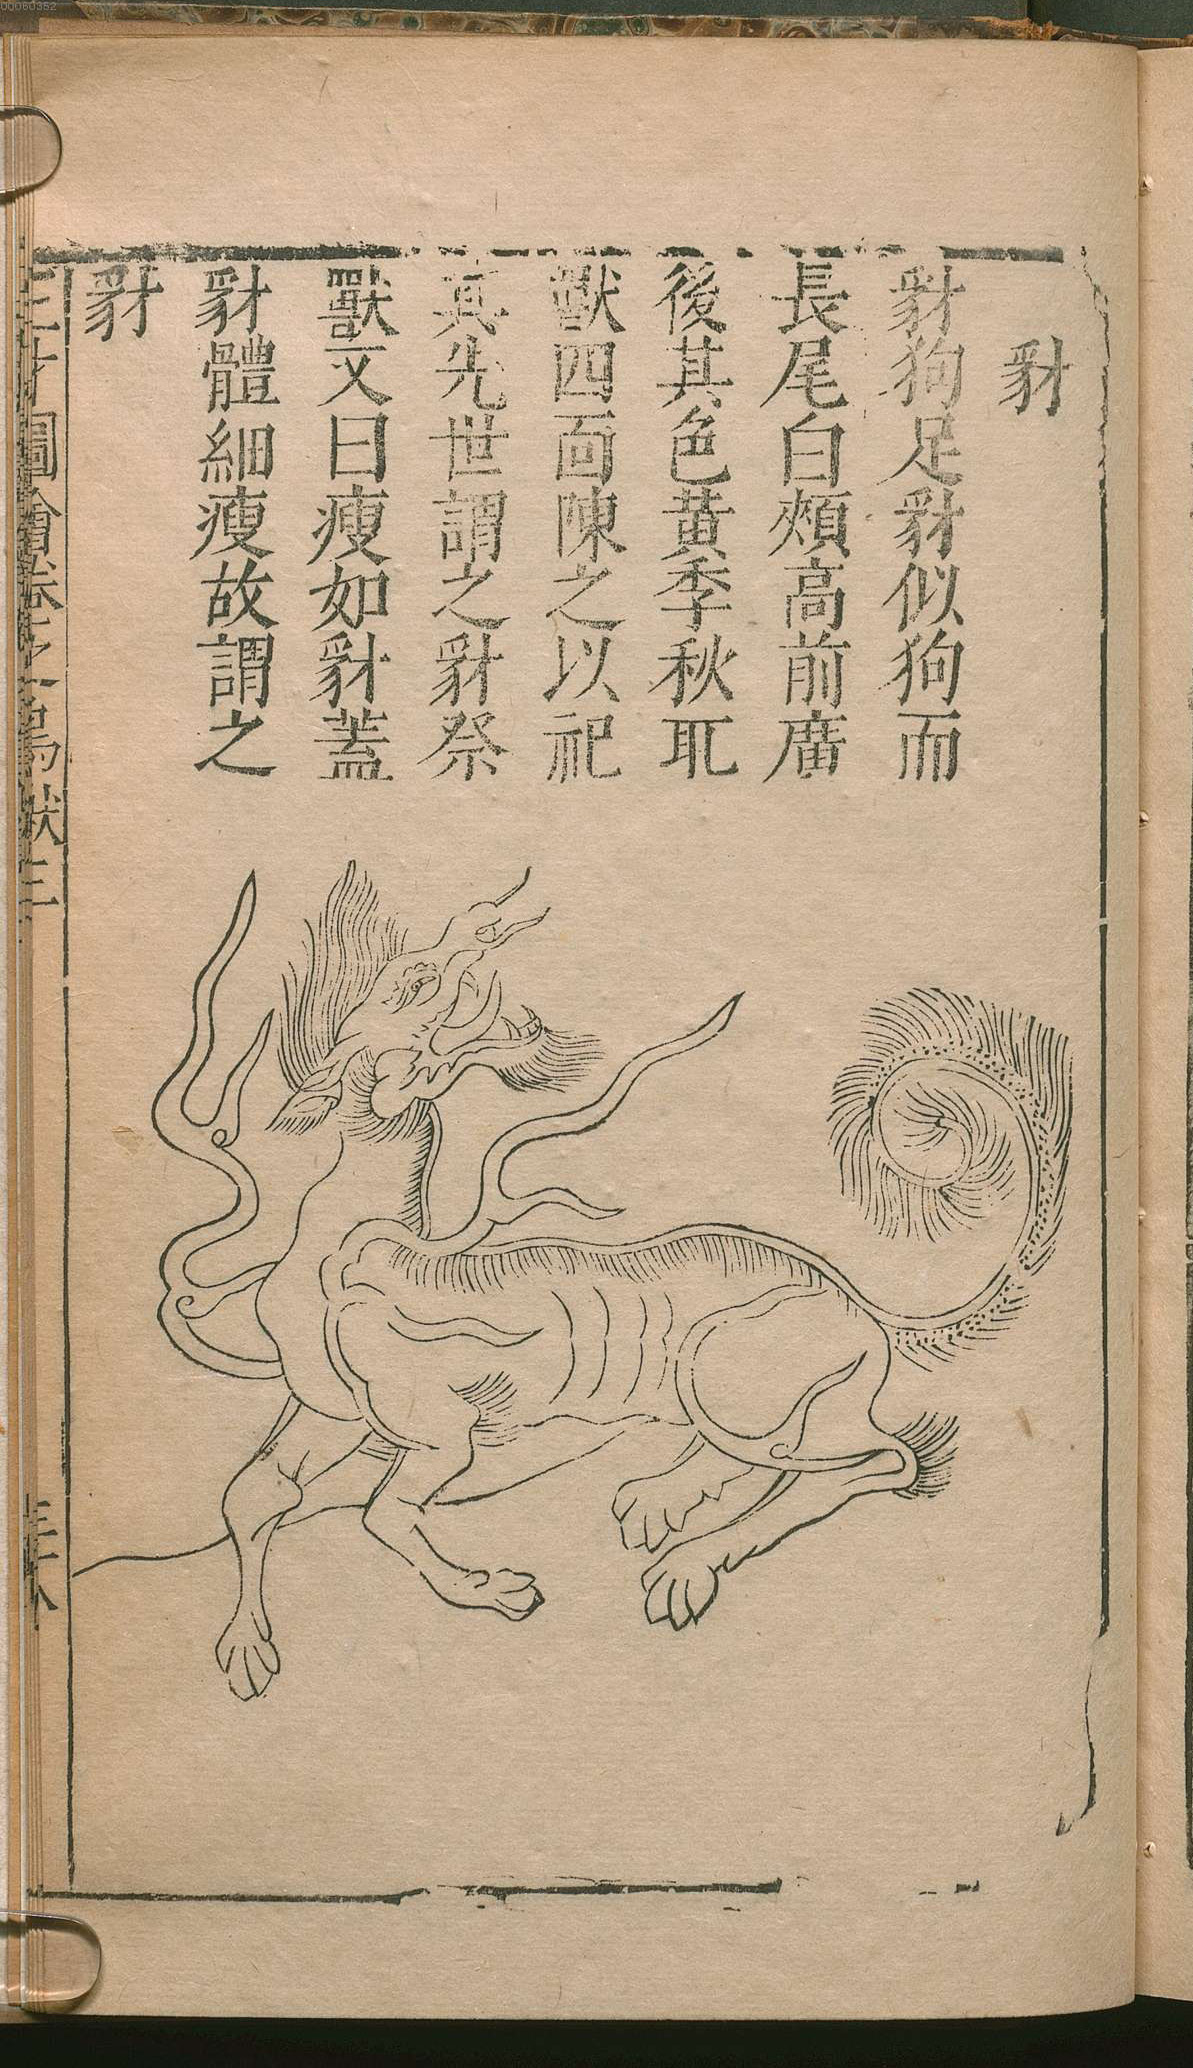 豺
豺狗足豺似狗而
長尾白頰高前廣
後其色黄季秋取
獸四面陳之以祀
其先世謂之豺祭
獸又曰瘦如豺蓋
豺體細瘦故謂之
豺
三才圖會卷之鳥獸三
00060352